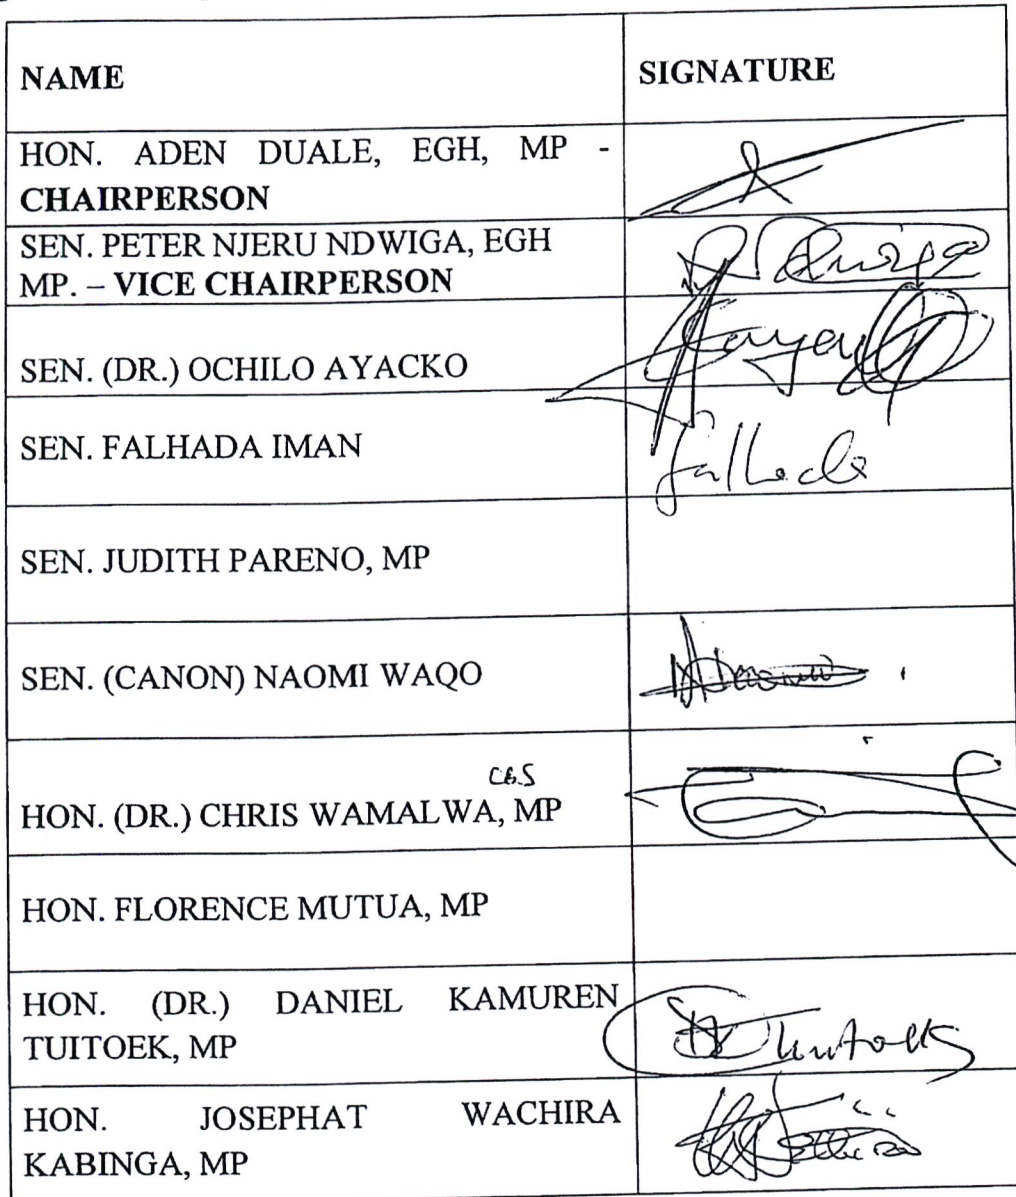 NAME
SIGNATURE
HON. ADEN DUALE, EGH, MP -
CHAIRPERSON
SEN. PETER NJERU NDWIGA, EGH
MP. – VICE CHAIRPERSON
SEN. (DR.) OCHILO AYACKO
SEN. FALHADA IMAN
SEN. JUDITH PARENO, MP
SEN. (CANON) NAOMI WAQO
CBS
HON. (DR.) CHRIS WAMALWA, MP
HON. FLORENCE MUTUA, MP
HON. (DR.) DANIEL KAMUREN
TUITOEK, MP
HON. JOSEPHAT WACHIRA
KABINGA, MP